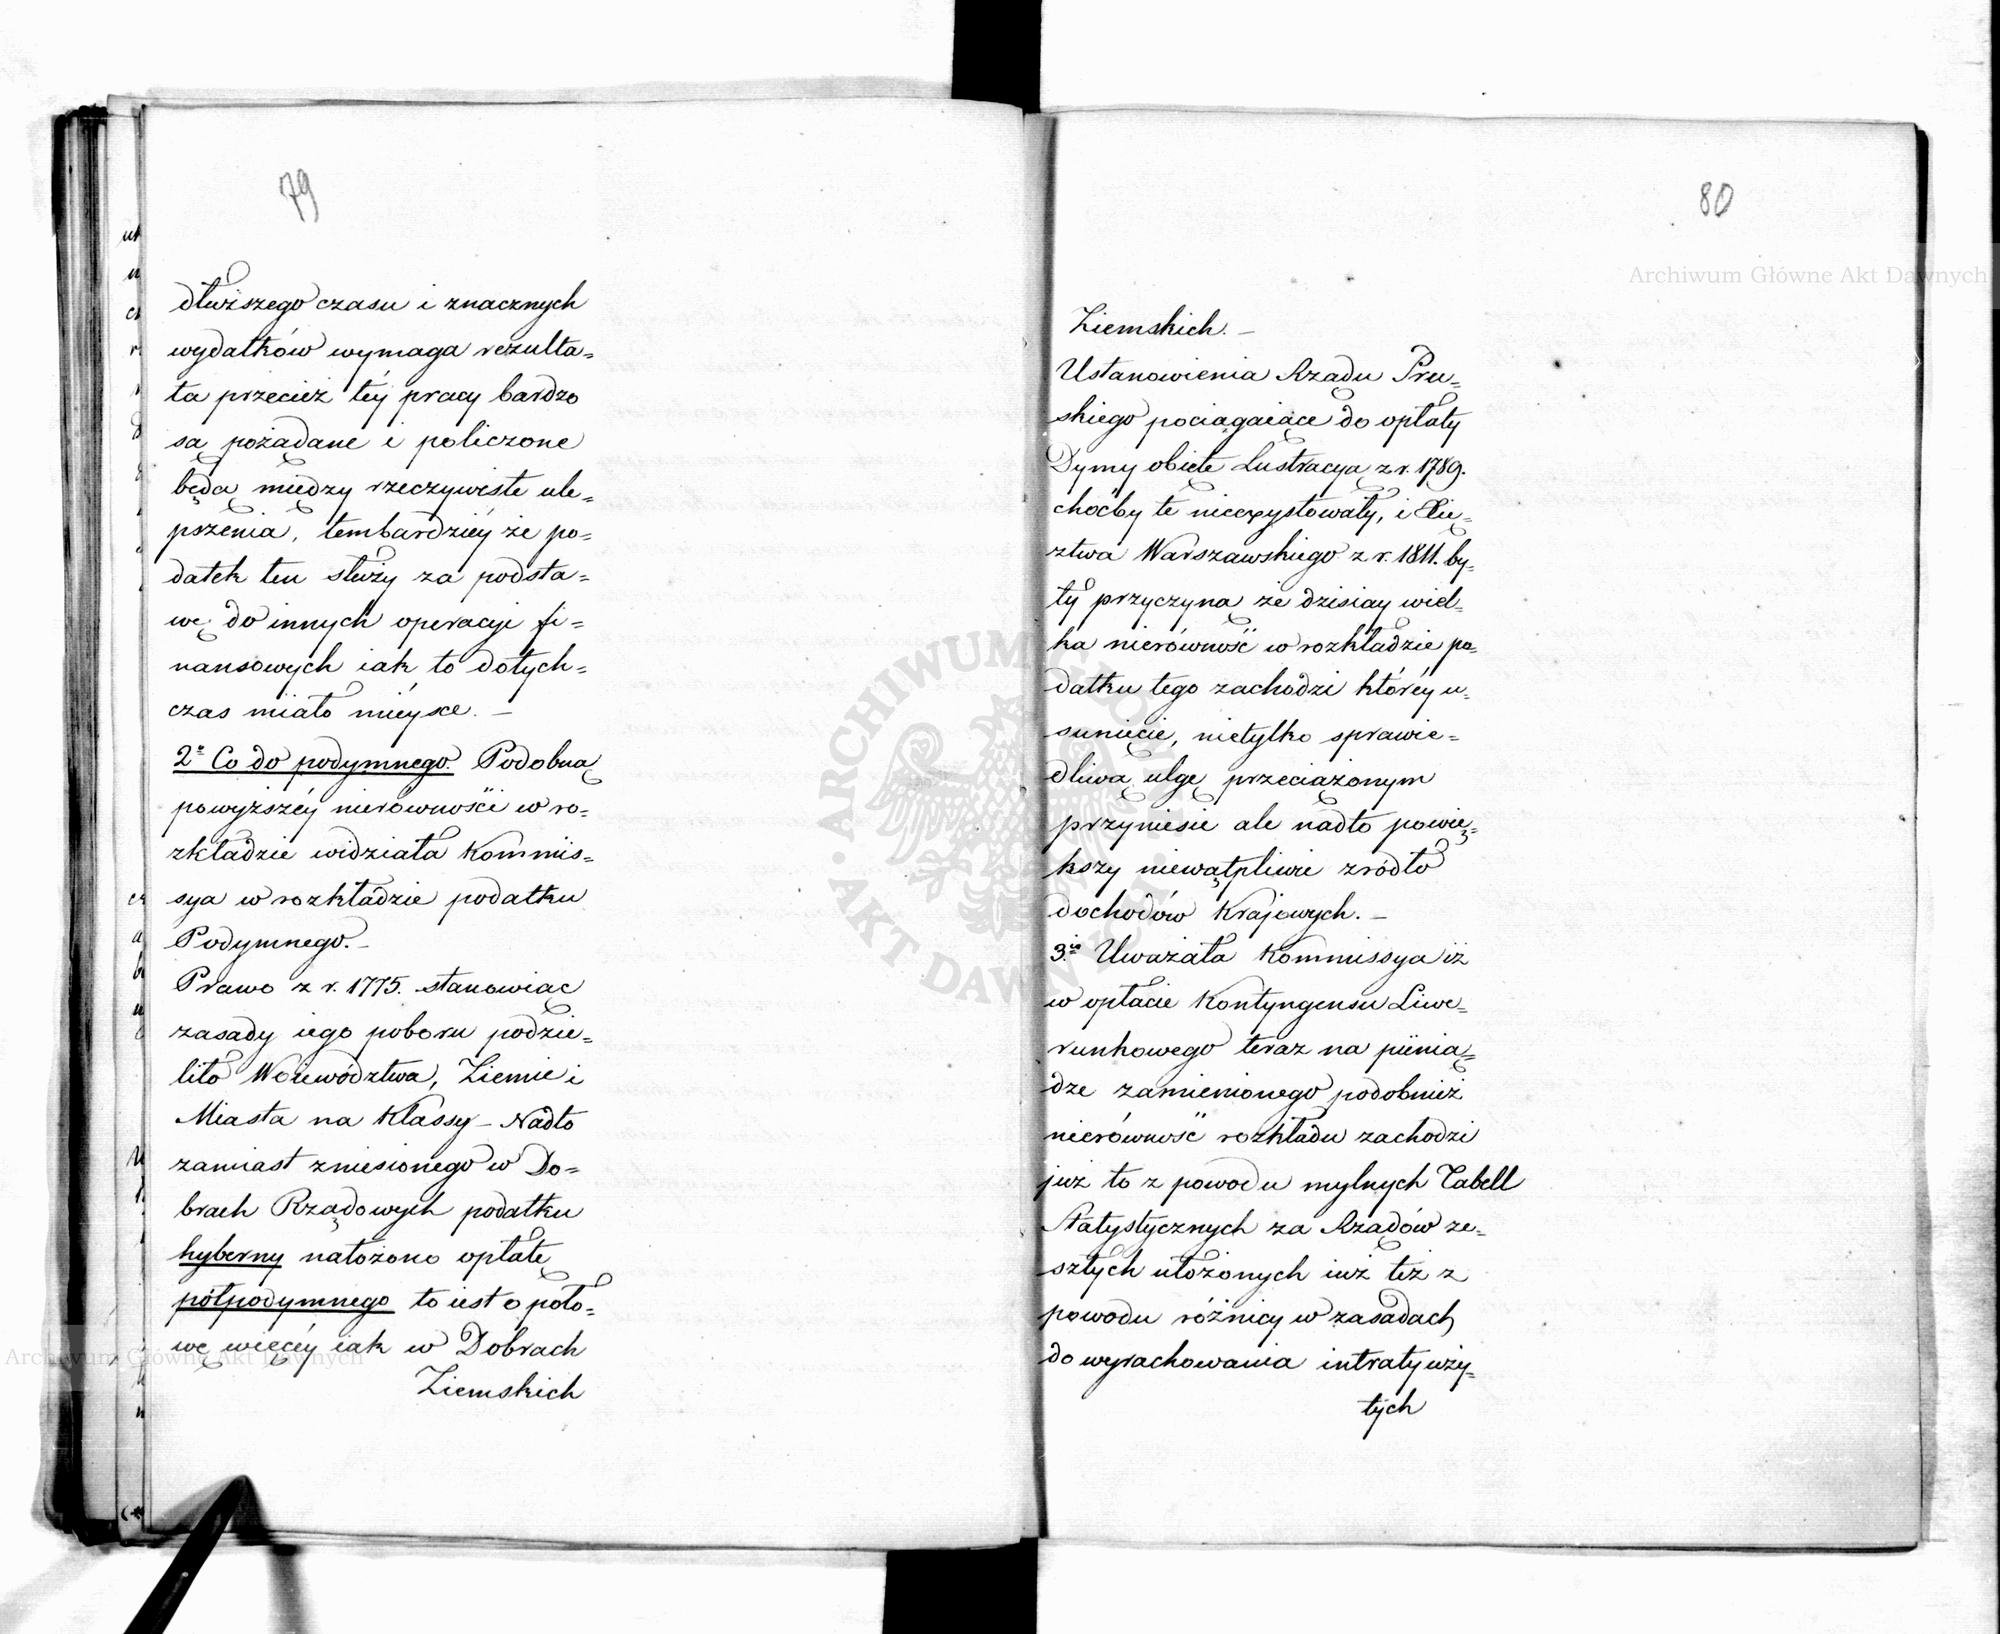 79
dłuższego czasu i znacznych
wydatków wymaga rezulta=
ta przecież téy pracy bardzo
są pożądane i policzone
będą między rzeczywiste ule=
pszenia, tembardziéy że po=
datek ten służy za podsta=
wę do innych operacyi fi=
nansowych iak to dotych=
czas miało miéysce. –
2° Co do podymnego Podobną
powyższéy nierówności w ro=
zkładzie widziała Kommis=
sya w rozkładzie podatku
Podymnego. –
Prawo z r. 1775. stanowiąc
zasady iego poboru podzie=
liło Woiewództwa, Ziemie i
Miasta na Klassy – Nadto
zamiast zniesionego w Do=
brach Rządowych podatku
hyberny nałożono opłatę
półpodymnego to iest o poło=
wę więcéy iak w Dobrach
Ziemskich
80
Ziemskich. –
Ustanowienia Rządu Pru=
skiego pociągaiące do opłaty
Dymy obięte Lustracyą z r. 1789.
choćby te nieexystowały, i Xię=
ztwa Warszawskiego z r. 1811. by=
ły przyczyną że dzisiay wiel=
ka nierówność w rozkładzie po=
datku tego zachodzi któréy u=
sunięcie, nietylko sprawie=
dliwą ulgę przeciążonym
przyniesie ale nadto powię=
kszy niewątpliwie zródło
dochodów Krajowych. –
3. Uważała Kommissya iż
w opłacie Kontyngensu Liwe=
runkowego teraz na pienią=
dze zamienionego podobnież
nierówność rozkładu zachodzi
już to z powodu mylnych Tabell
Statystycznych za Rządów ze=
szłych ułożonych iuż też z
powodu różnicy w zasadach
do wyrachowania intraty uży=
tych
Archiwum Główne Akt Dawnych
Archiwum Główne Akt Dawnych